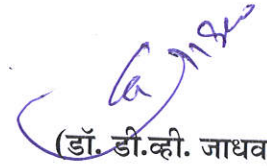 (डॉ. डी.व्ही. जाधव